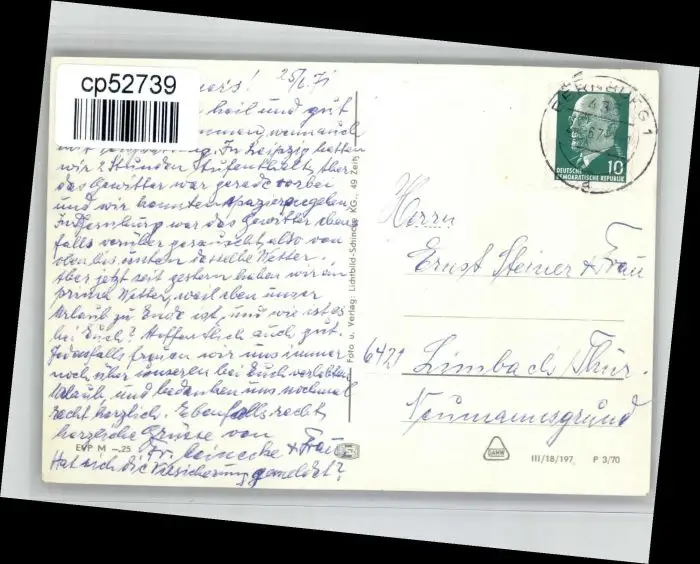 cp52739
ners! 25/6.71
heil und gut
men, wenn auch
In Leipzig hatten
wir 2 Stunden Aufenthalt, aber
das Gewitter war gerade vorbei
und wir konnten spazierengehen.
In Bernburg war das Gewitter eben-
falls vorüber gerauscht, also von
oben bis unten dasselbe Wetter.
Aber jetzt seit gestern haben wir
prima Wetter, weil eben unser
Urlaub zu Ende ist, und wie ist es
bei Euch? Hoffentlich auch gut.
Jedenfalls freuen wir uns immer
noch über unseren bei Euch verlebten
Urlaub, und bedanken uns nochmal
recht herzlich. Ebenfalls recht
herzliche Grüsse von
Fr. Heinecke & Frau
Hat sich die Versicherung gemeldet?
EVP M –.25
Foto u. Verlag: Lichtbild-Schincke KG., 49 Zeitz
BERNBURG 1
10
DEUTSCHE
DEMOKRATISCHE REPUBLIK
Herrn
Ernst Steiner & Frau
6421 Limbach/Thür.
Neumannsgrund
III/18/197 P 3/70